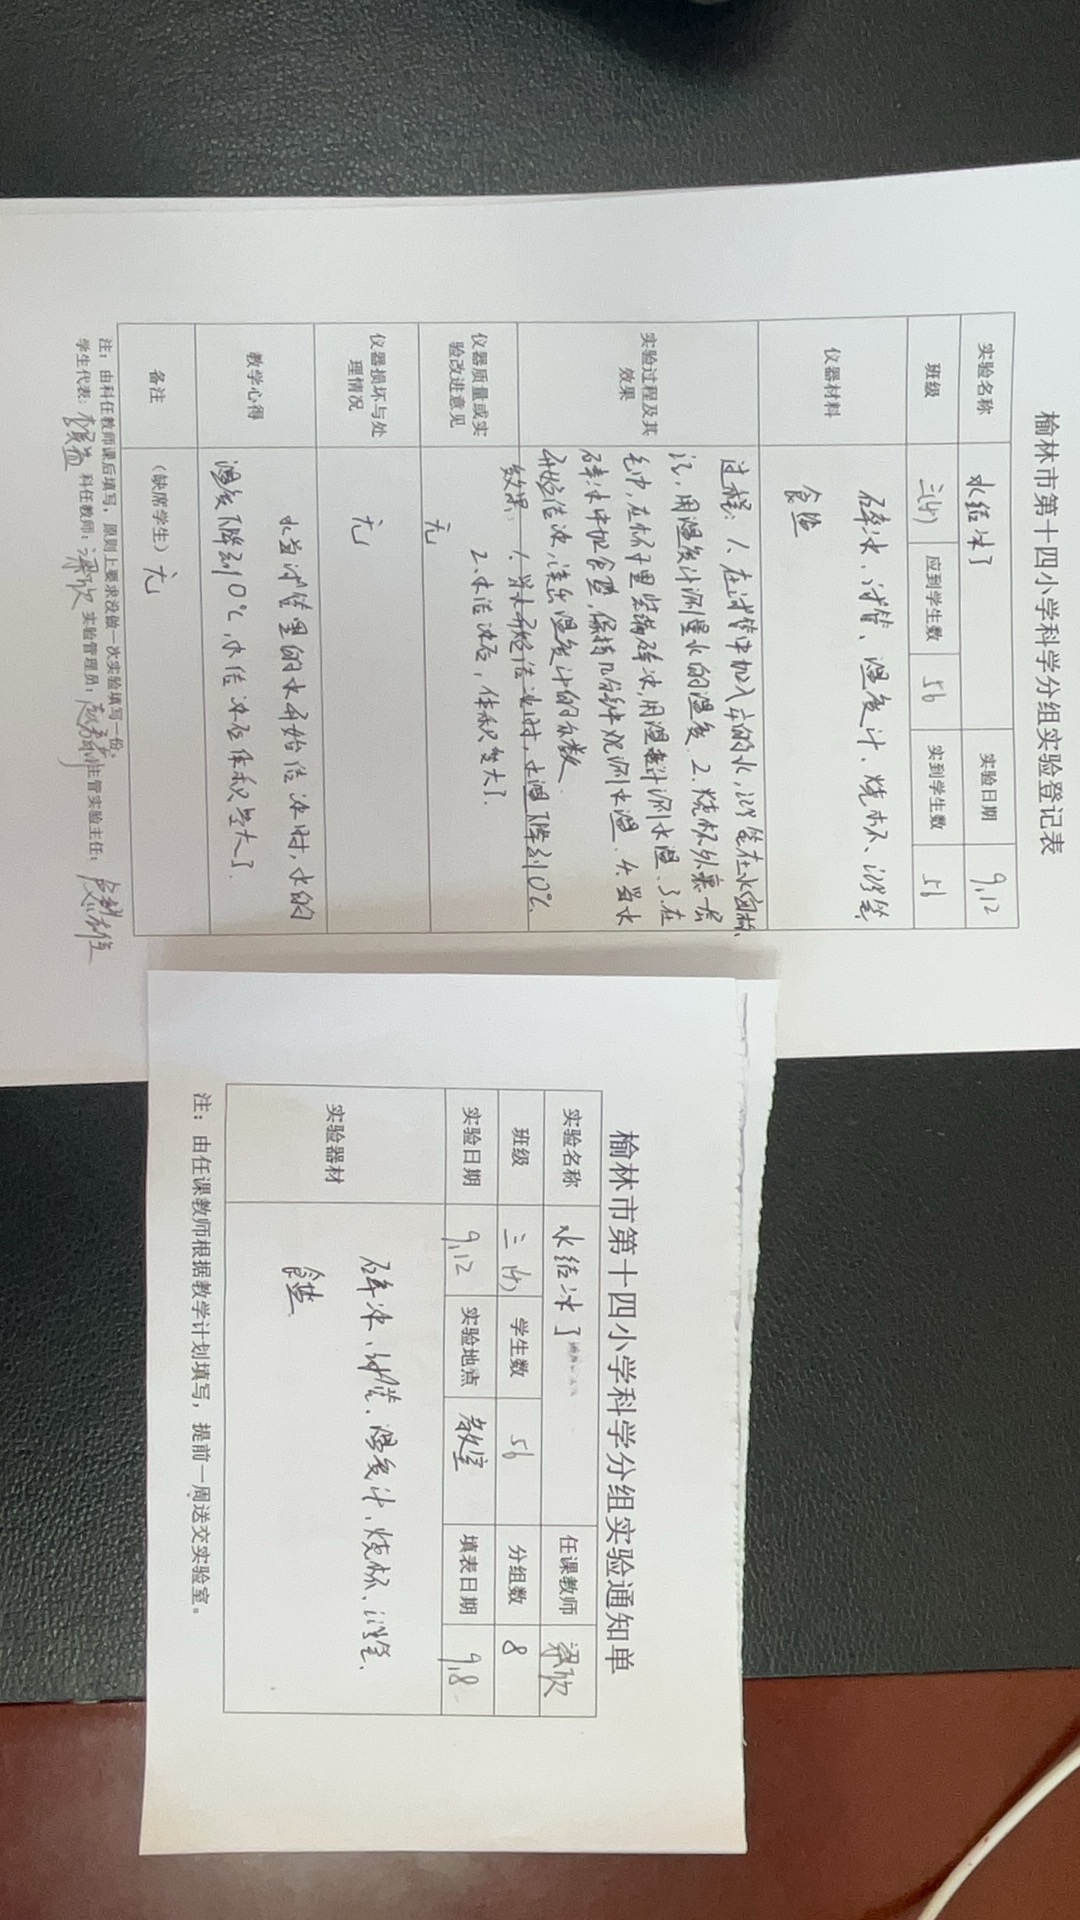 榆林市第十四小学科学分组实验登记表
实验名称 水结冰了 实验日期 9.12
班级 三(4) 应到学生数 56 实到学生数 56
仪器材料 碎冰、试管、温度计、烧杯、记号笔
食盐
实验过程及其效果 过程:1、在试管中加入 的水,记号笔在水面标
记,用温度计测量水的温度 2.烧杯外裹一层
毛巾,在杯子里装满碎冰,用温度计测水温、3.在
碎冰中加食盐,保持几分钟观测水温、4.当水
开始结冰,读出温度计的 数
效果:1.当水开始结冰时,水温下降到0℃
2.水结冰后,体积变大了.
仪器质量或实验改进意见 无
仪器损坏与处理情况 无
教学心得 水当试管里的水开始结冰时,水的
温度下降到0℃,水结冰后体积变大了.
备注 (缺席学生)无
注:由科任教师课后填写,原则上要求没做一次实验填写一份。
学生代表: 科任教师:梁欢 实验管理员: 主管实验主任:
榆林市第十四小学科学分组实验通知单
实验名称 水结冰了 任课教师 梁欢
班级 三(4) 学生数 56 分组数 8
实验日期 9.12 实验地点 教室 填表日期 9.8
实验器材 碎冰、试管、温度计、烧杯、记号笔、
食盐
注:由任课教师根据教学计划填写,提前一周送交实验室。